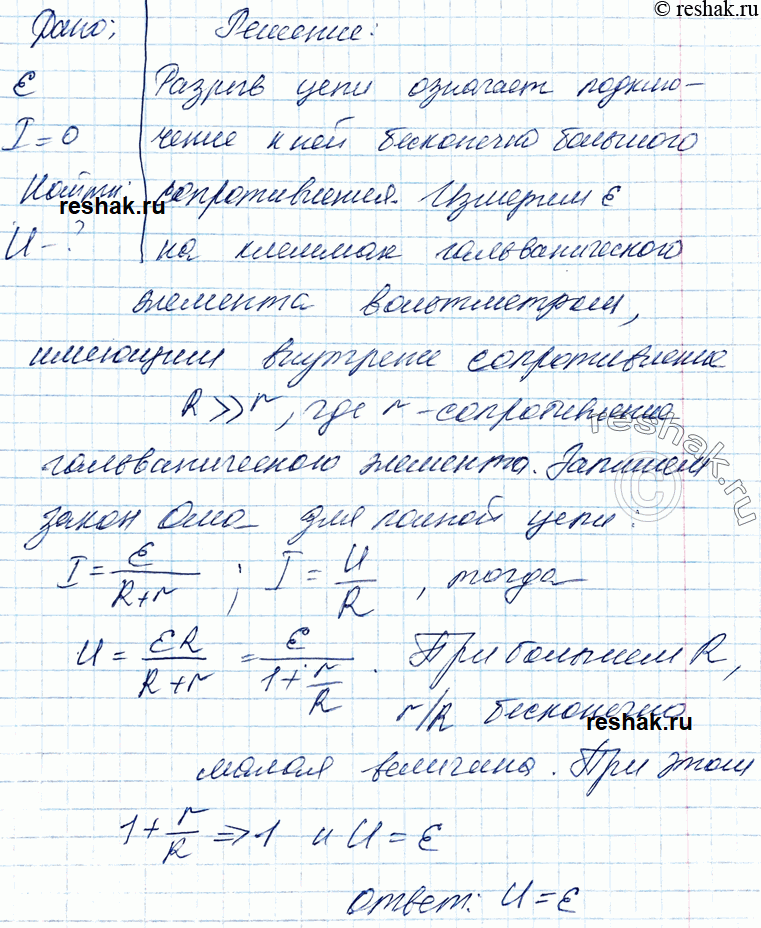 reshak.ru
Дано: Решение:
ε Разрыв цепи означает подклю-
I = 0 чение к ней бесконечно большого
Найти: сопротивления. Измерим ε
reshak.ru
U - ? на клеммах гальванического
элемента вольтметром,
имеющим внутрене сопротивление
R >> r, где r - сопротивление
reshak.ru
гальванического элемента. Запишем
©
закон Ома для полной цепи:
I = ε/(R+r) ; I = U/R , тогда
U = εR/(R+r) = ε/(1+r/R) . При большем R,
r/R бесконечно
reshak.ru
малая величина. При этом
1 + r/R => 1 и U = ε
ответ: U = ε